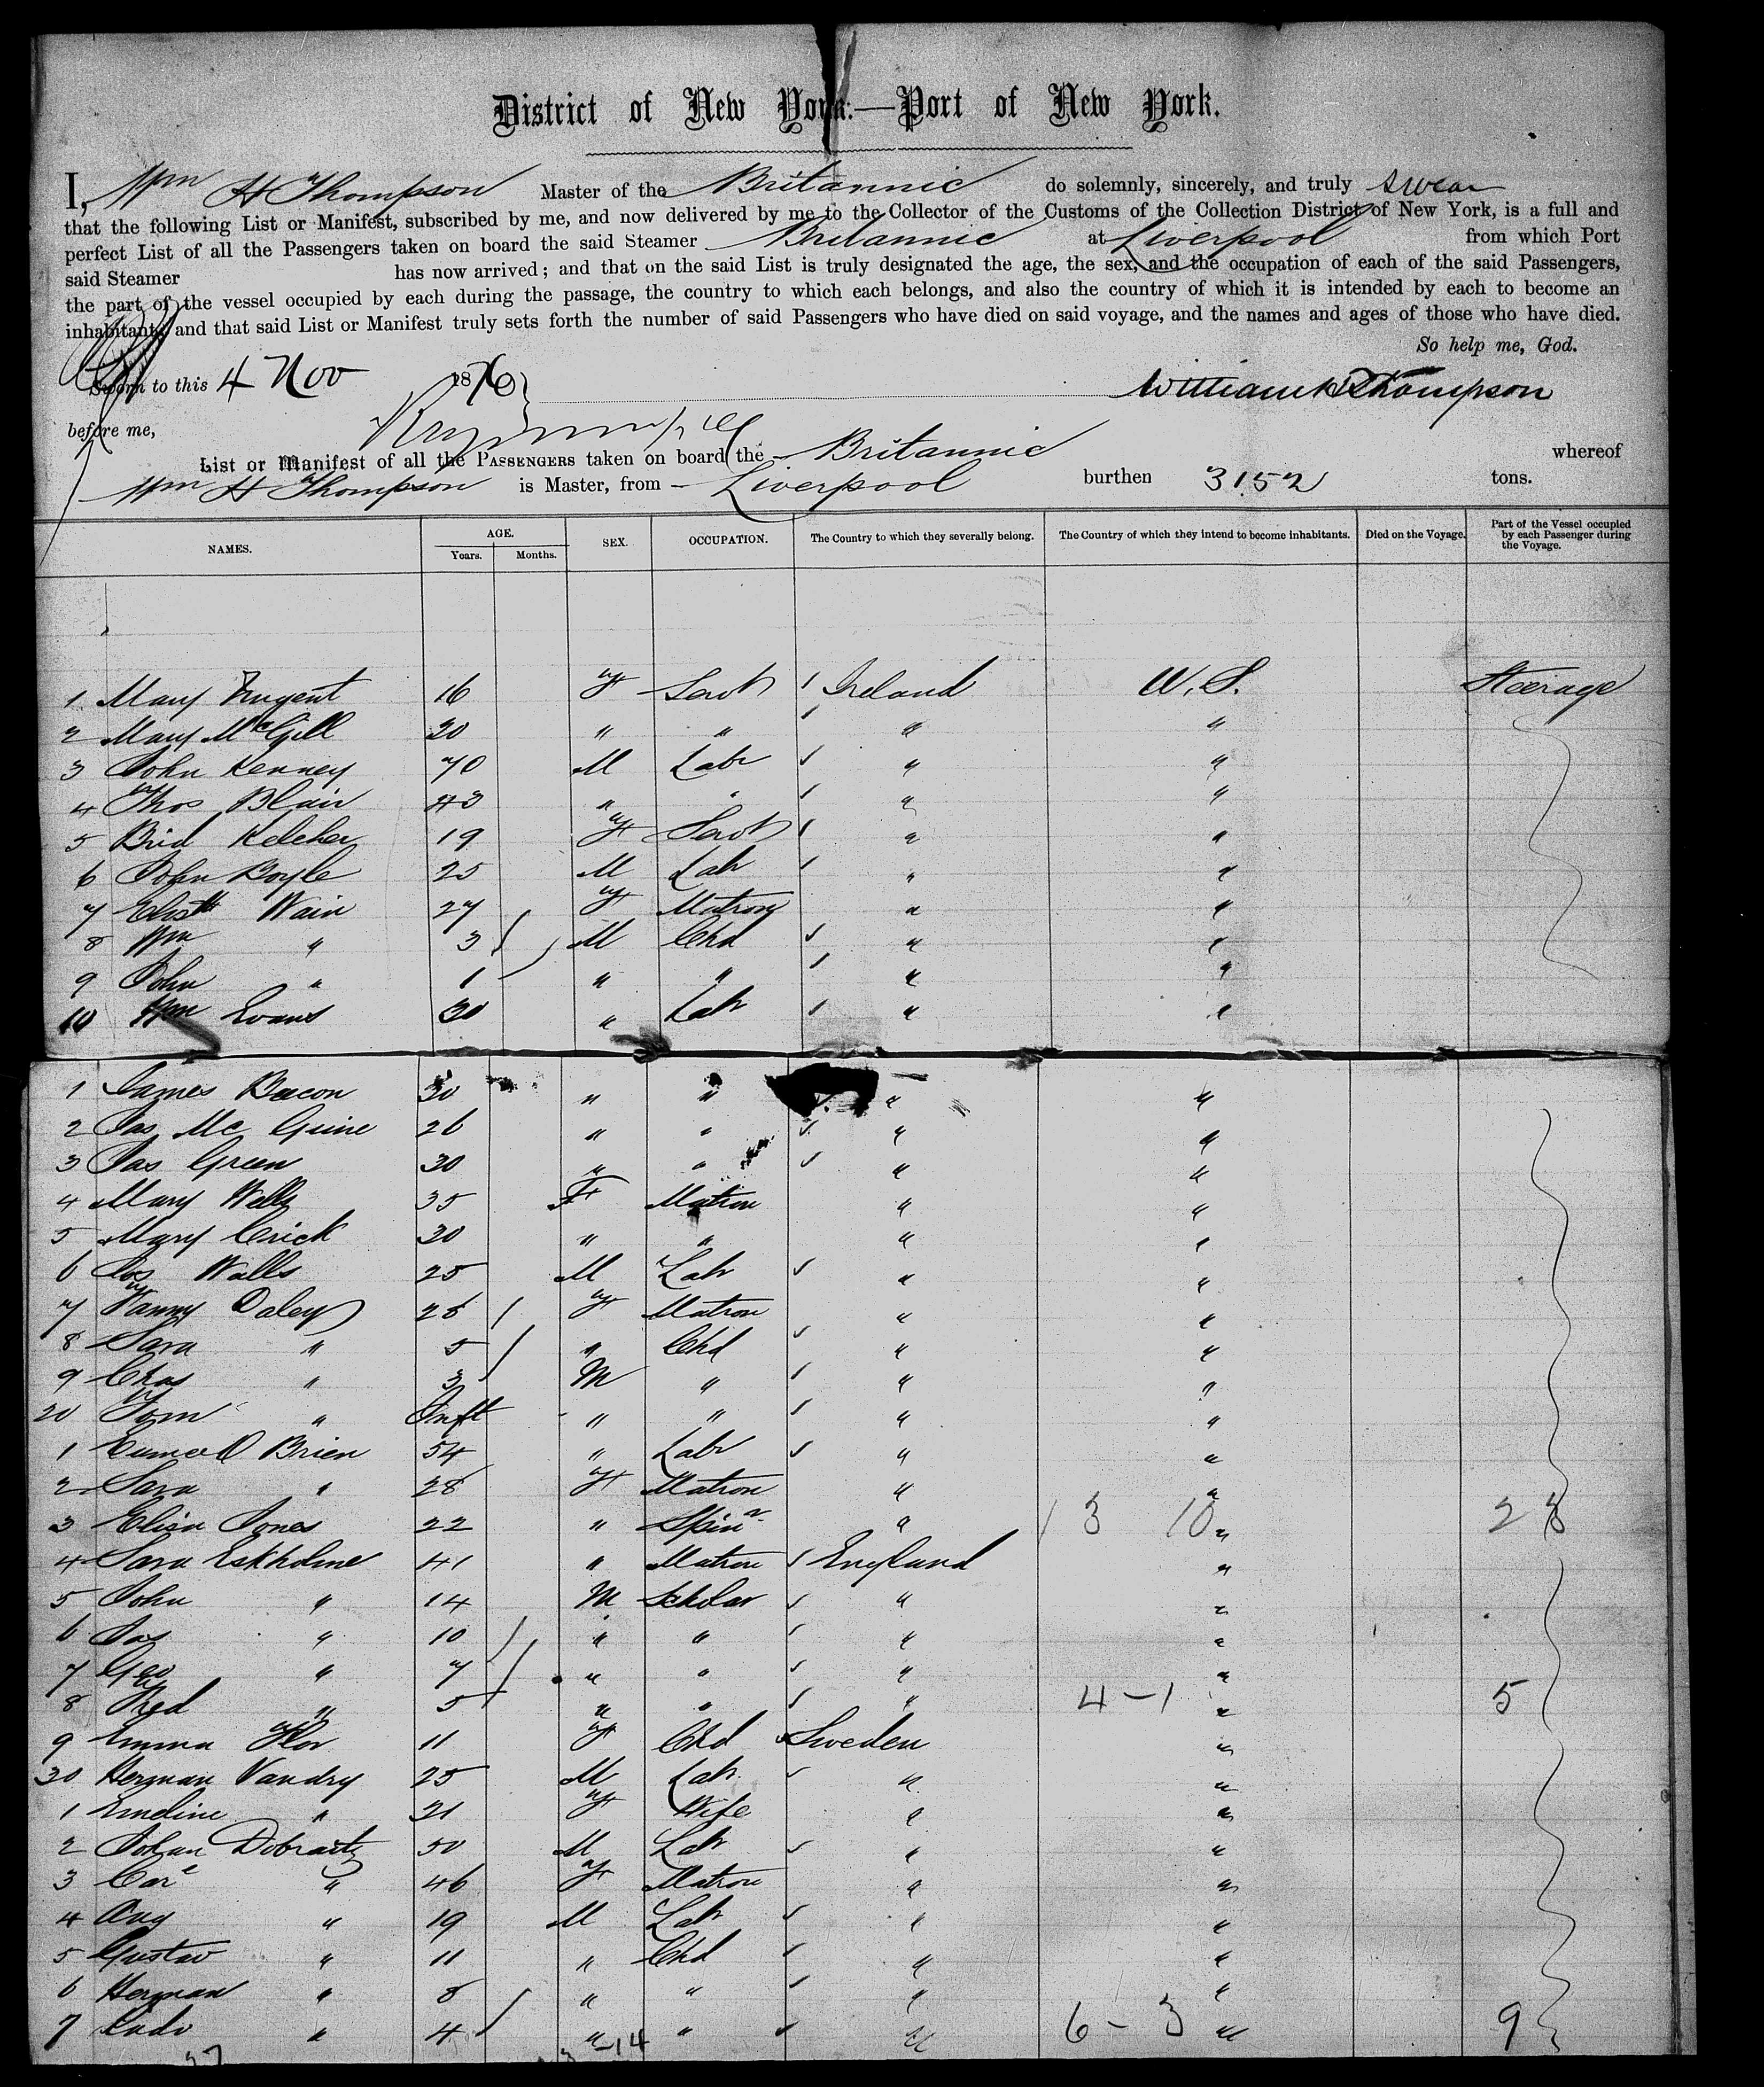 District of New York:—Port of New York.
I, Wm H Thompson Master of the Britannic do solemnly, sincerely, and truly swear
that the following List or Manifest, subscribed by me, and now delivered by me to the Collector of the Customs of the Collection District of New York, is a full and
perfect List of all the Passengers taken on board the said Steamer Britannic at Liverpool from which Port
said Steamer has now arrived; and that on the said List is truly designated the age, the sex, and the occupation of each of the said Passengers,
the part of the vessel occupied by each during the passage, the country to which each belongs, and also the country of which it is intended by each to become an
inhabitant; and that said List or Manifest truly sets forth the number of said Passengers who have died on said voyage, and the names and ages of those who have died.
So help me, God.
Sworn to this 4 Nov 1876 William H Thompson
before me,
List or Manifest of all the PASSENGERS taken on board the Britannic whereof
Wm H Thompson is Master, from Liverpool burthen 3152 tons.
NAMES. AGE. Years. Months. SEX. OCCUPATION. The Country to which they severally belong. The Country of which they intend to become inhabitants. Died on the Voyage. Part of the Vessel occupied by each Passenger during the Voyage.
1 Mary Nugent 16 F Servt Ireland U.S. Steerage
2 Mary McGill 20 " " " "
3 John Kenney 70 M Labr " "
4 Thos Blair 43 " " " "
5 Brid Keleher 19 F Servt " "
6 John Boyle 25 M Lab " "
7 Elizth Wain 27 F Matron " "
8 Wm " 3 M Chd " "
9 John " 1 " " " "
10 Wm Evans 30 " Labr " "
1 James Bacon 30 " " " "
2 Jas Mc Guine 26 " " " "
3 Jas Green 30 " " " "
4 Mary Wells 35 F Matron " "
5 Mary Crick 30 " " " "
6 Jos Walls 25 M Labr " "
7 Fanny Daley 26 F Matron " "
8 Sara " 5 " Chd " "
9 Chas " 3 M " " "
20 Tom " Inft " " " "
1 O Brien 54 " Labr " "
2 Sara " 28 F Matron " "
3 Eliza Jones 22 " Spinr " 13 10 " 23
4 Sara Eskholme 41 " Matron England "
5 John " 14 M Scholar " "
6 Jas " 10 " " " "
7 Geo " 7 " " " "
8 Fred " 5 " " " 4-1 " 5
9 Emma Flor 11 F Chd Sweden "
30 Herman Vandry 25 M Lab. " "
1 Emeline " 21 F Wife " "
2 Johan Dobraitz 50 M Lab " "
3 Care " 46 F Matron " "
4 Aug " 19 M Lab " "
5 Gustav " 11 " Chd " "
6 Herman " 8 " " " "
7 " 4 " " " 6-3 " 9